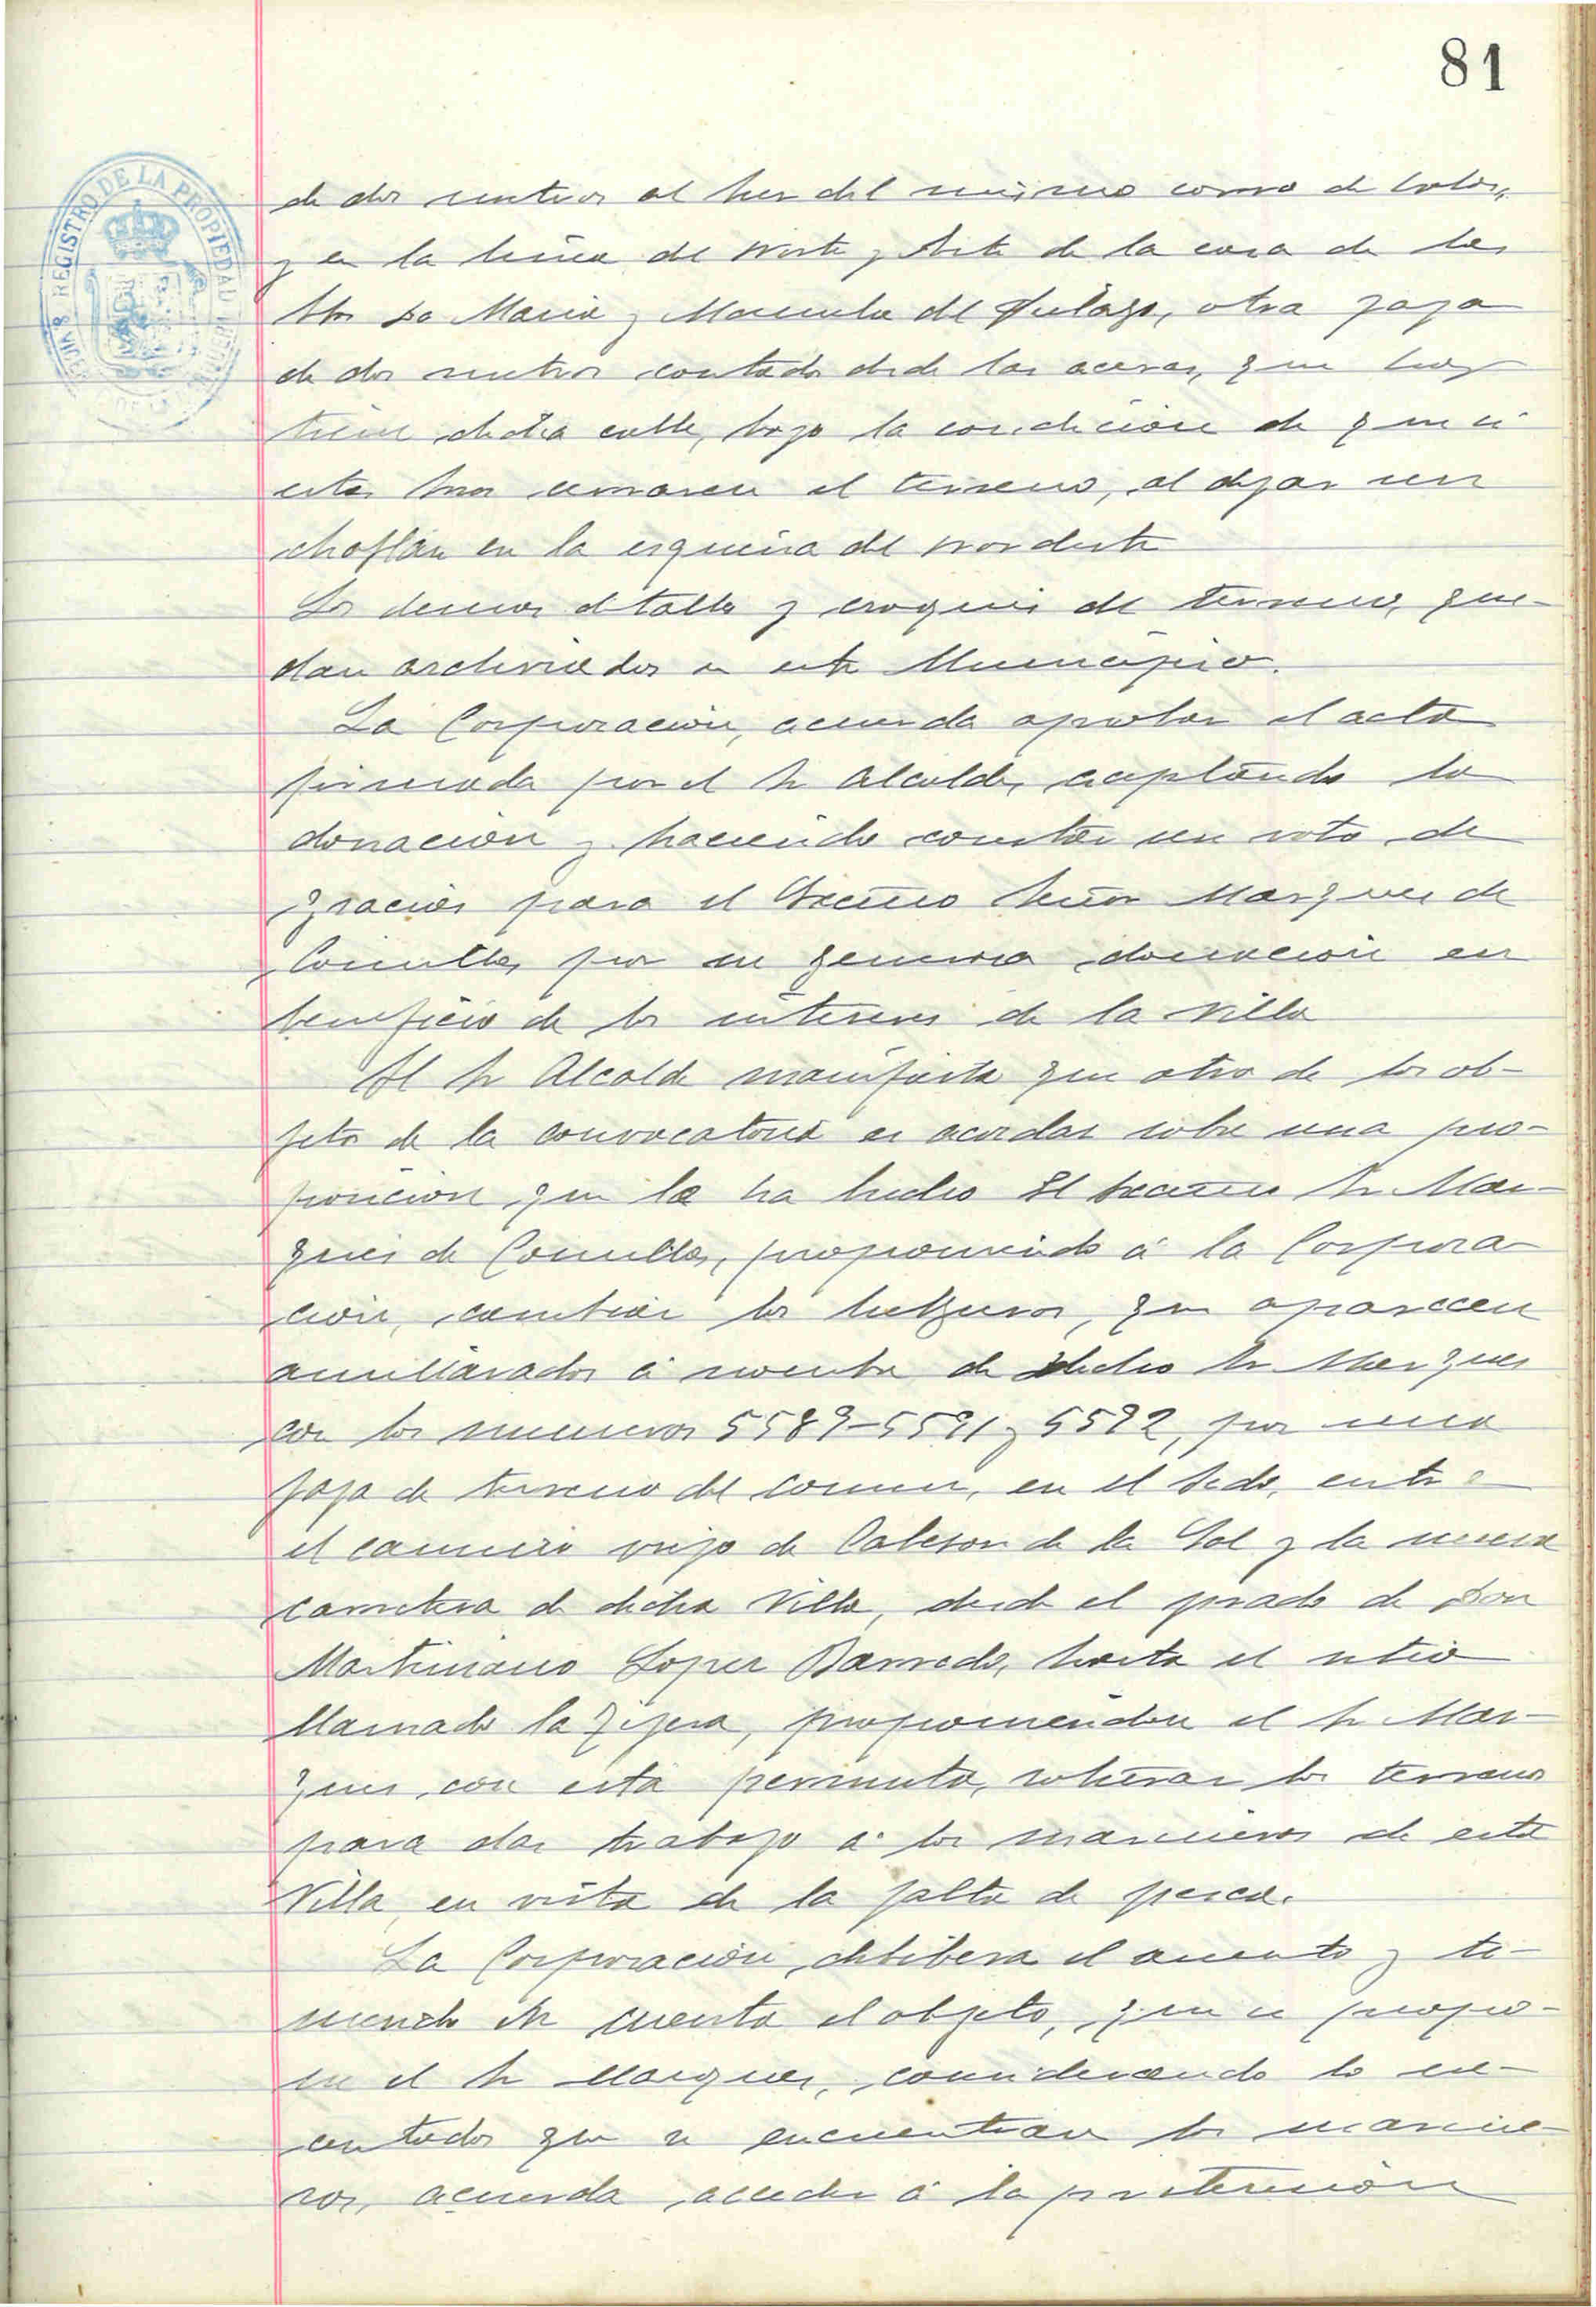 81
REGISTRO DE LA PROPIEDAD
de dos metros al Sur del mismo como de
y en la linea del Norte y Este de la casa de las
Sras Da Maria y Manuela del Pielago, otra faja
de dos metros contados desde las aceras, que hoy
tiene dicha calle, bajo la condición de que si
estas Sras cerrasen el terreno, al dejar un
chaflán en la esquina del nordeste
Los demas detalles y croquis del terreno, que-
dan archivados en este Municipio.
La Corporación, acuerda aprobar el acta
firmada por el Sr Alcalde, aceptando la
donación y haciendo constar un voto de
gracias para el Excmo Señor Marques de
Comillas, por su generosa donación en
beneficio de los intereses de la Villa
El Sr Alcalde manifiesta que otro de los ob-
jetos de la convocatoria es acordar sobre una pro-
posicion que le ha hecho El Excmo Sr Mar-
ques de Comillas, proponiendo á la Corpora-
ción, cambiar los helgueros, que aparecen
amillarados á nombre de dicho Sr Marques
con los numeros 5589-5591 y 5592, por una
faja de terreno del comun, en el Sedo, entre
el camino viejo de Cabezon de la Sal y la nueva
carretera de dicha Villa, desde el prado de Don
Martiniano Lopez Barredo, hasta el sitio
llamado la, proponiendose el Sr Mar-
ques, con esta permuta, roturar los terrenos
para dar trabajo a los marineros de esta
Villa, en vista de la falta de pesca.
La Corporación, delibera el asunto y te-
niendo en cuenta el objeto, que se propo-
ne el Sr Marques, considerando lo
que se encuentran los marine-
ros, acuerda acceder á la pretensión